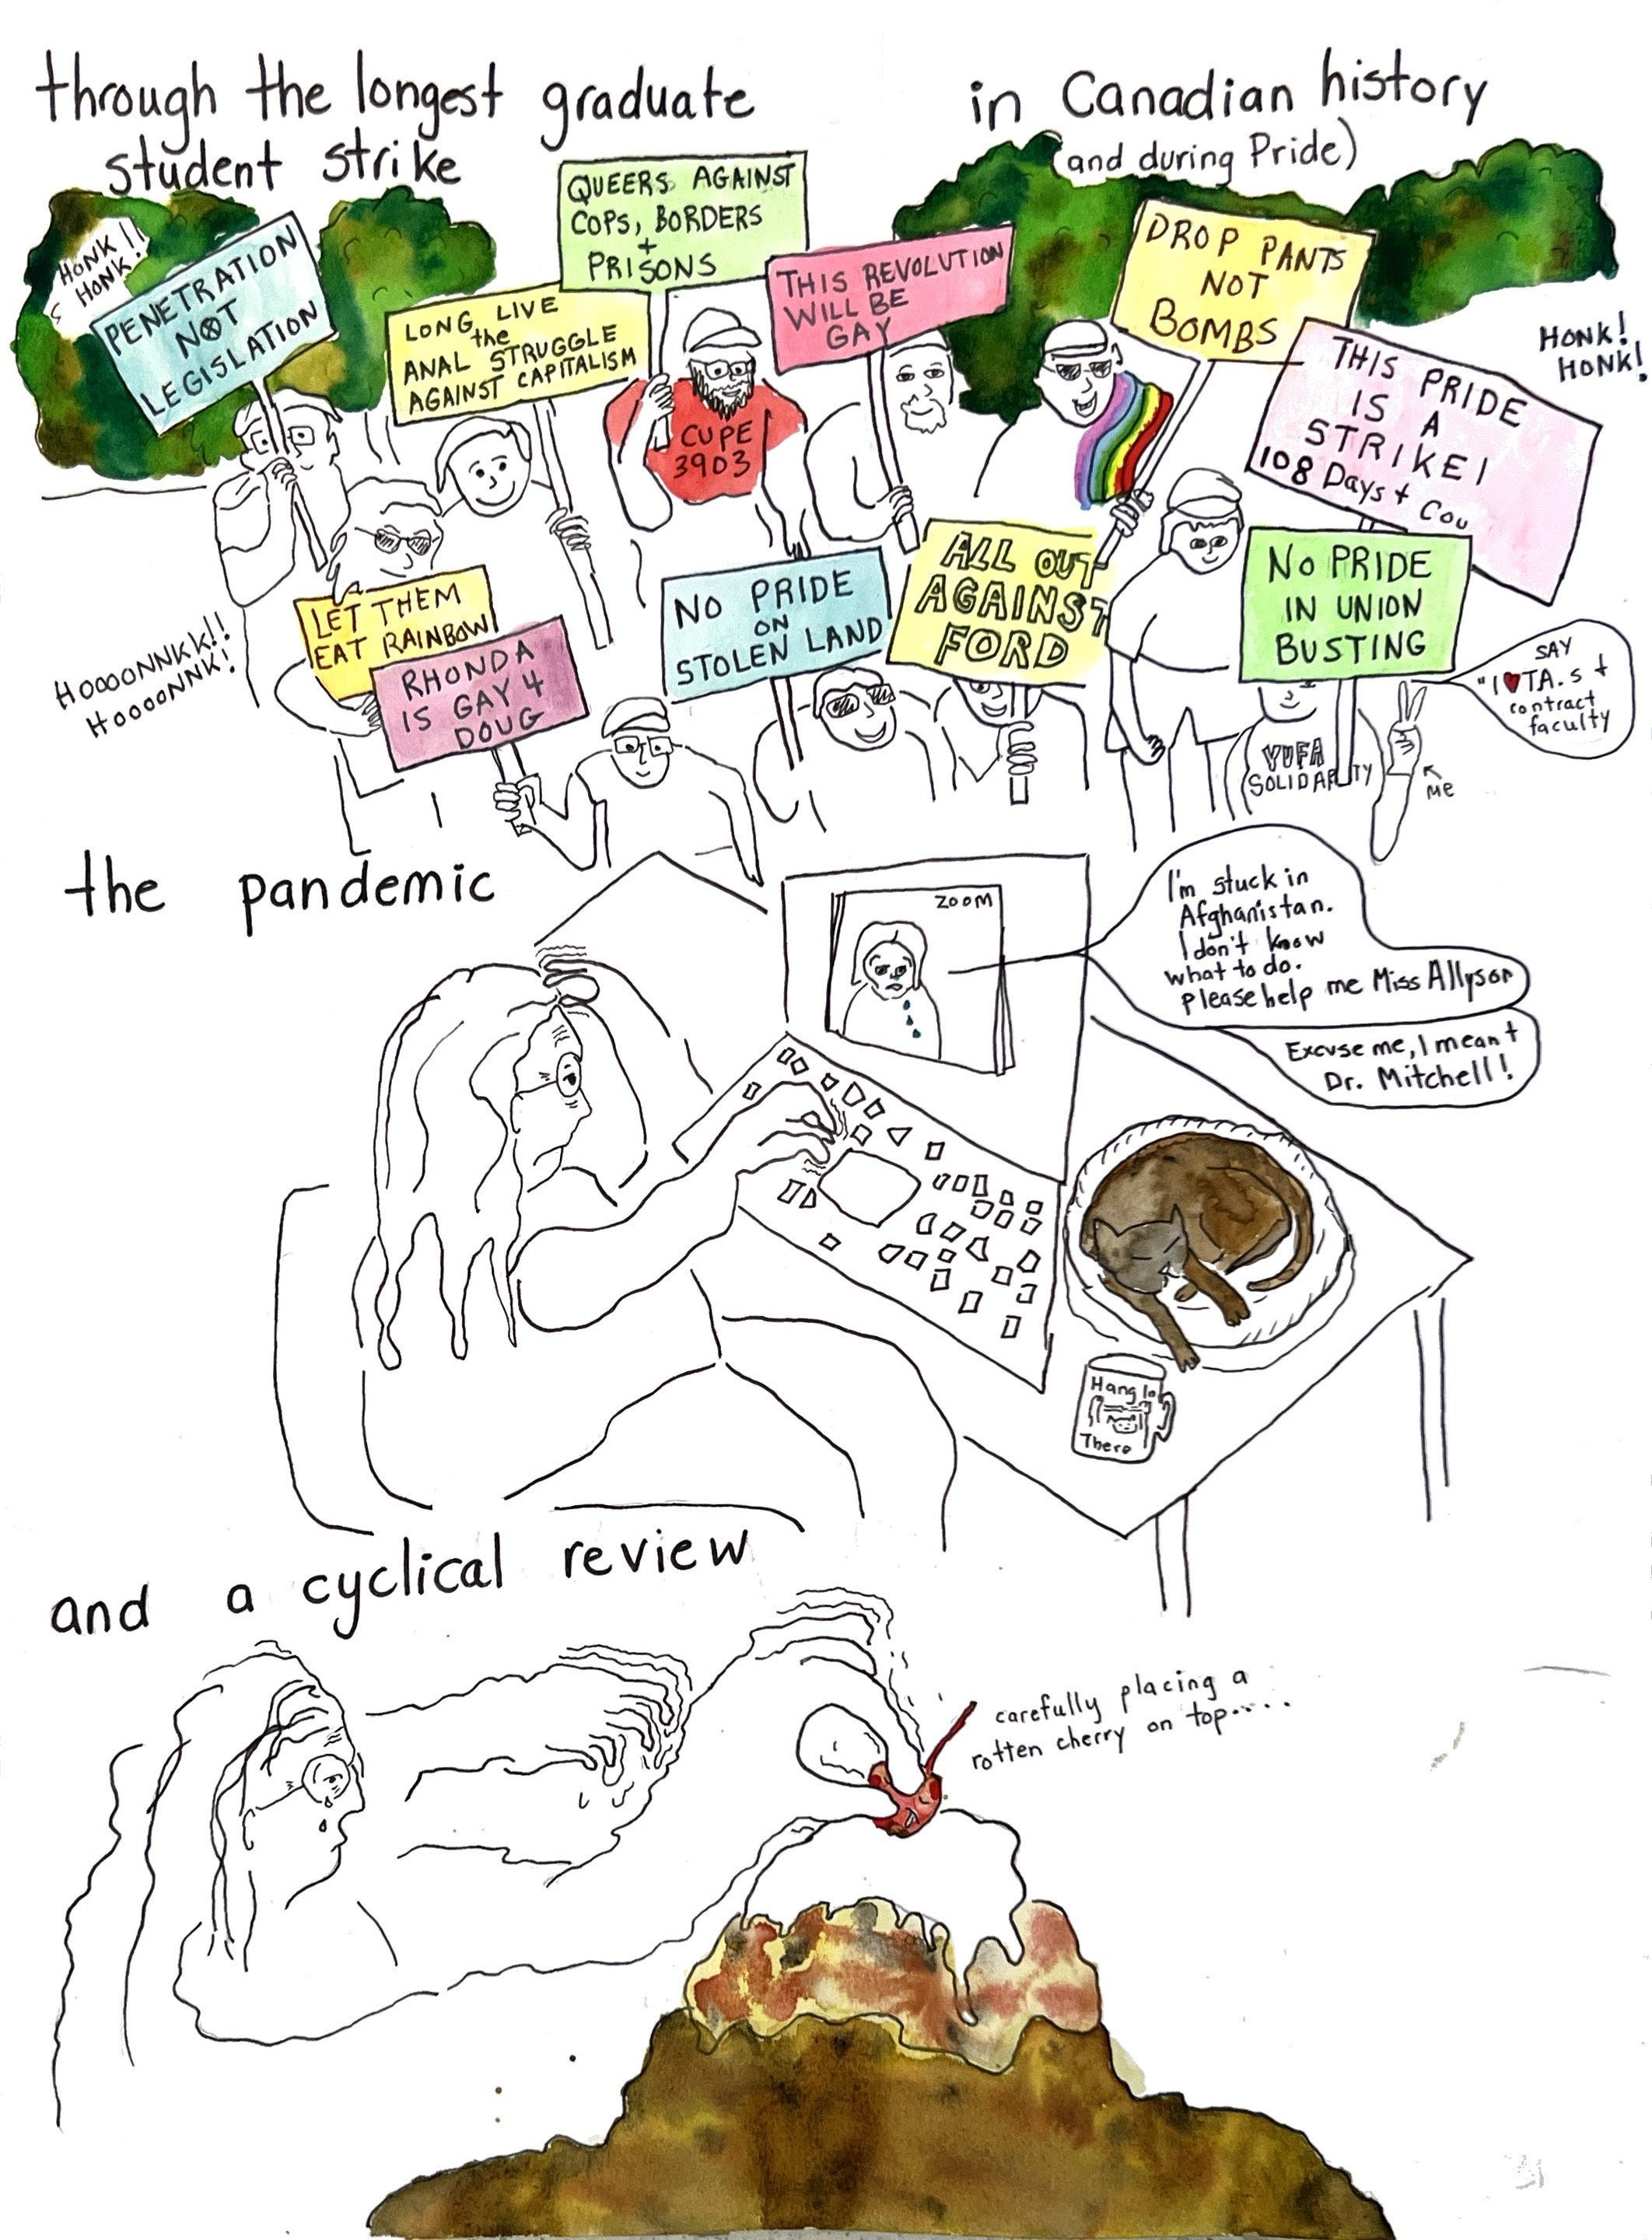 through the longest graduate
student strike
in Canadian history
(and during Pride)
HONK!!
HONK!
PENETRATION
NOT
LEGISLATION
LONG LIVE
the
ANAL STRUGGLE
AGAINST CAPITALISM
QUEERS AGAINST
COPS, BORDERS
+
PRISONS
THIS REVOLUTION
WILL BE
GAY
DROP PANTS
NOT
BOMBS
THIS PRIDE
IS A
STRIKE!
108 Days + Cou
HONK!
HONK!
CUPE
3903
HOOOONNKK!!
HOOOONNK!
LET THEM
EAT RAINBOW
RHONDA
IS GAY 4
DOUG
NO PRIDE
ON
STOLEN LAND
ALL OUT
AGAINST
FORD
NO PRIDE
IN UNION
BUSTING
SAY
"I ♥ TA.s +
contract
faculty
YUFA
SOLIDARITY
ME
the pandemic
ZOOM
I'm stuck in
Afghanistan.
I don't know
what to do.
please help me Miss Allyson
Excuse me, I meant
Dr. Mitchell!
Hang In
There
and a cyclical review
carefully placing a
rotten cherry on top....